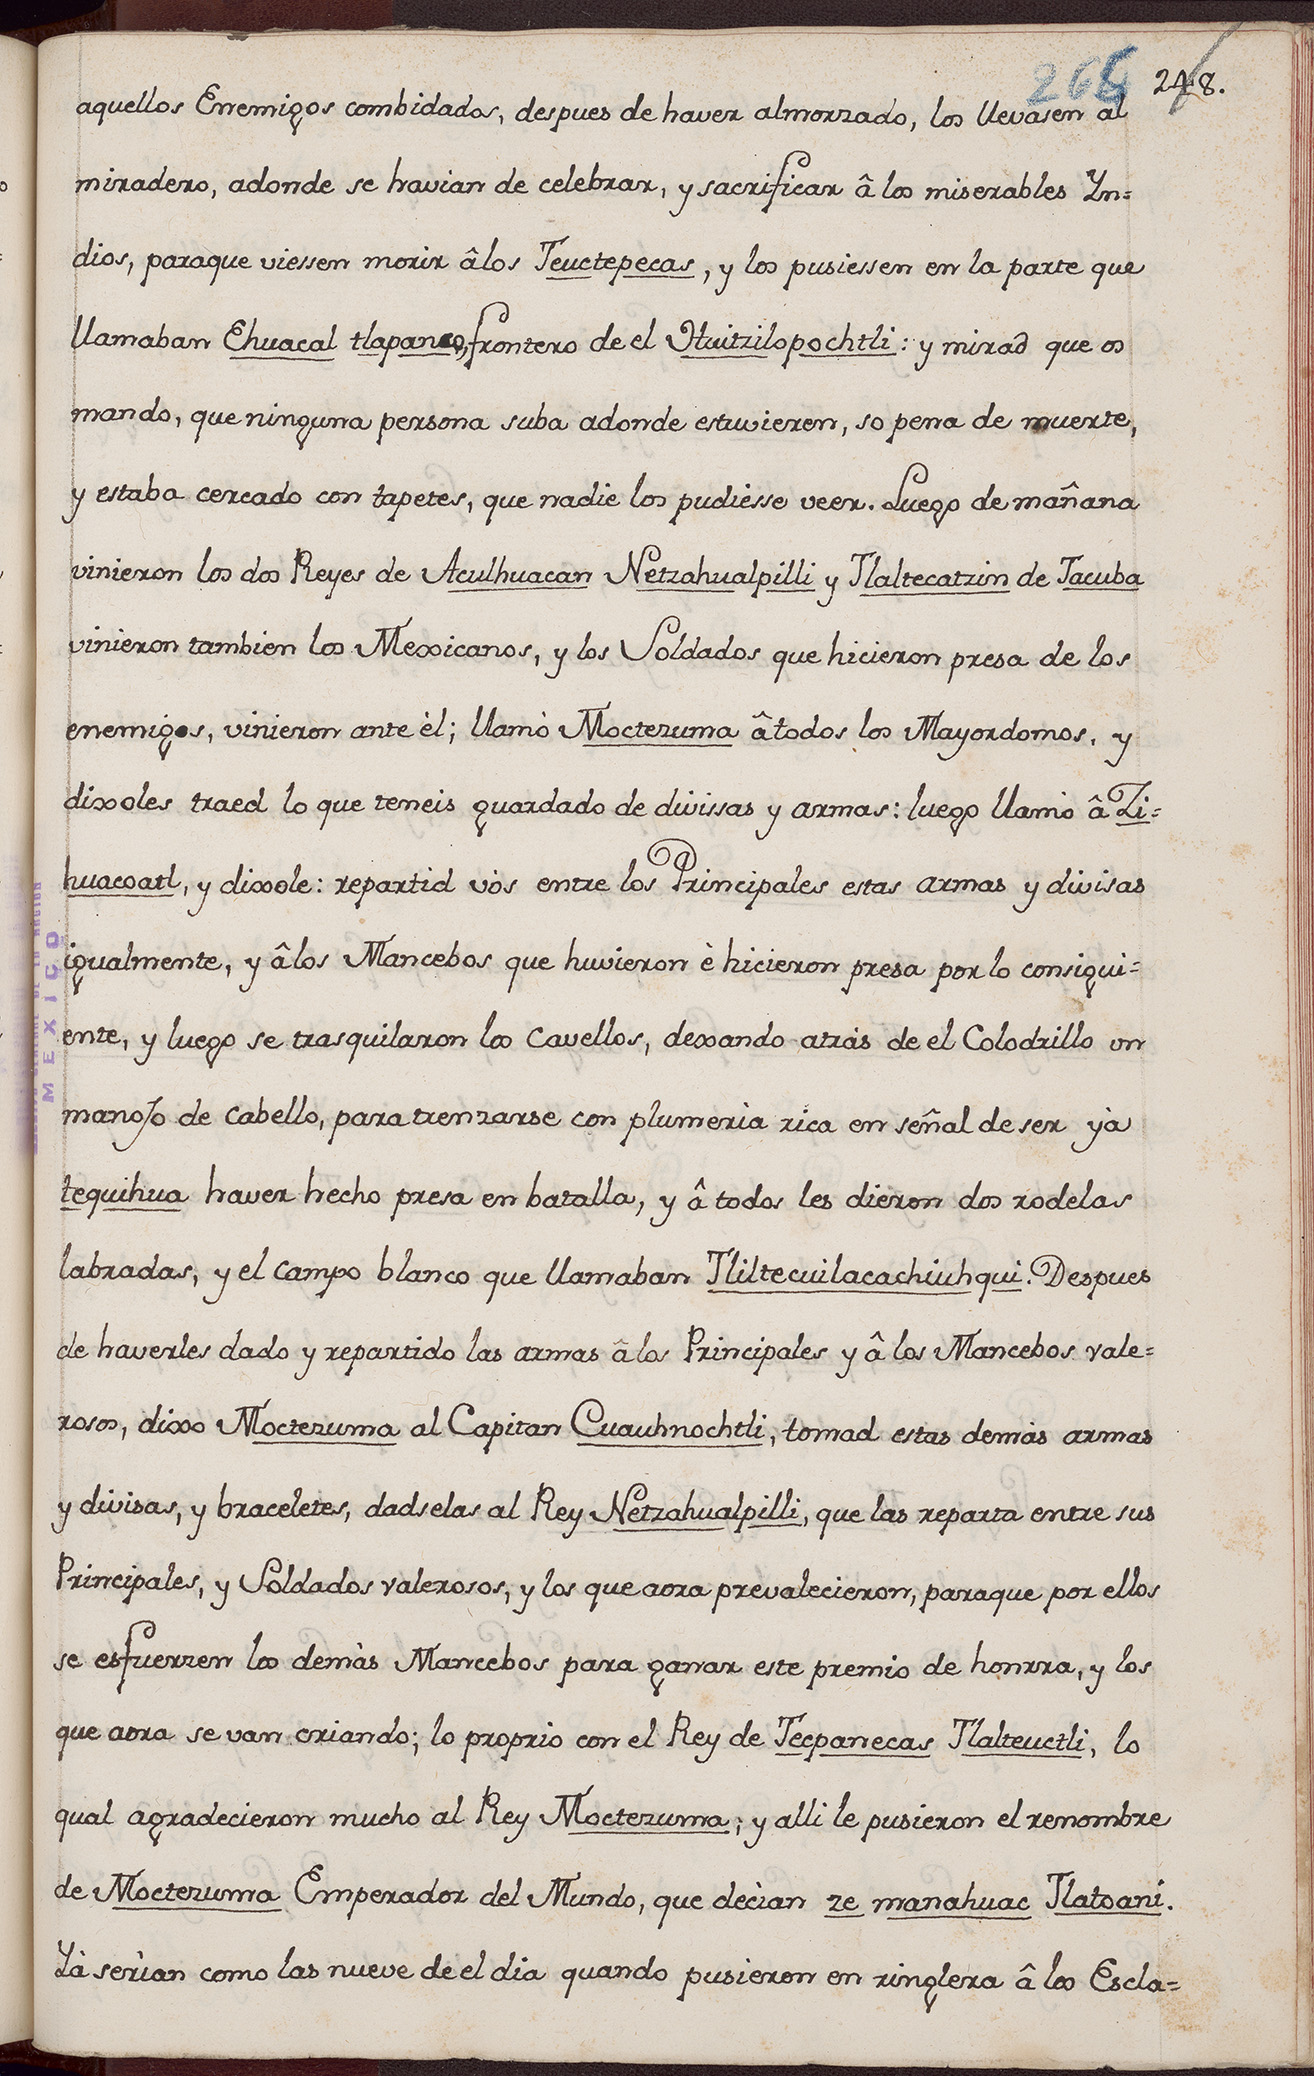 266 248.
aquellos Enemigos combidados, despues de haver almorzado, los llevasen al
miradero, adonde se havian de celebrar, y sacrificar â los miserables Yn=
dios, paraque viessen morir âlos Teuctepecas, y los pusiessen en la parte que
llamaban Ehuacal tlapanco, frontero de el Huitzilopochtli: y mirad que os
mando, que ninguna persona suba adonde estuvieren, so pena de muerte,
y estaba cercado con tapetes, que nadie los pudiesse veer. Luego de mañana
vinieron los dos Reyes de Aculhuacan Netzahualpilli y Tlaltecatzin de Tacuba
vinieron tambien los Mexicanos, y los Soldados que hicieron presa de los
enemigos, vinieron ante èl; llamò Moctezuma âtodos los Mayordomos, y
dixoles traed lo que teneis guardado de divissas y armas: luego llamò â Zi=
huacoatl, y dixole: repartid vòs entre los Principales estas armas y divisas
igualmente, y âlos Mancebos que huvieron è hicieron presa por lo consigui=
ente, y luego se trasquilaron los cavellos, dexando atràs de el Colodrillo un
manojo de cabello, para trenzarse con plumerìa rica en señal de ser yà
tequihua haver hecho presa en batalla, y â todos les dieron dos rodelas
labradas, y el campo blanco que llamaban Tliltecuilacachiuhqui. Despues
de haverles dado y repartido las armas âlos Principales y â los Mancebos vale=
rosos, dixo Moctezuma al Capitan Cuauhnochtli, tomad estas demàs armas
y divisas, y braceletes, dadselas al Rey Netzahualpilli, que las reparta entre sus
Principales, y Soldados valerosos, y los que aora prevalecieron, paraque por ellos
se esfuerzen los demàs Mancebos para ganar este premio de honrra, y los
que aora se van criando; lo proprio con el Rey de Tecpanecas Tlalteuctli, lo
qual agradecieron mucho al Rey Moctezuma; y alli le pusieron el renombre
de Moctezuma Emperador del Mundo, que decìan ze manahuac Tlatoani.
Yà serìan como las nueve de el dia quando pusieron en ringlera â los Escla=
MEXICO